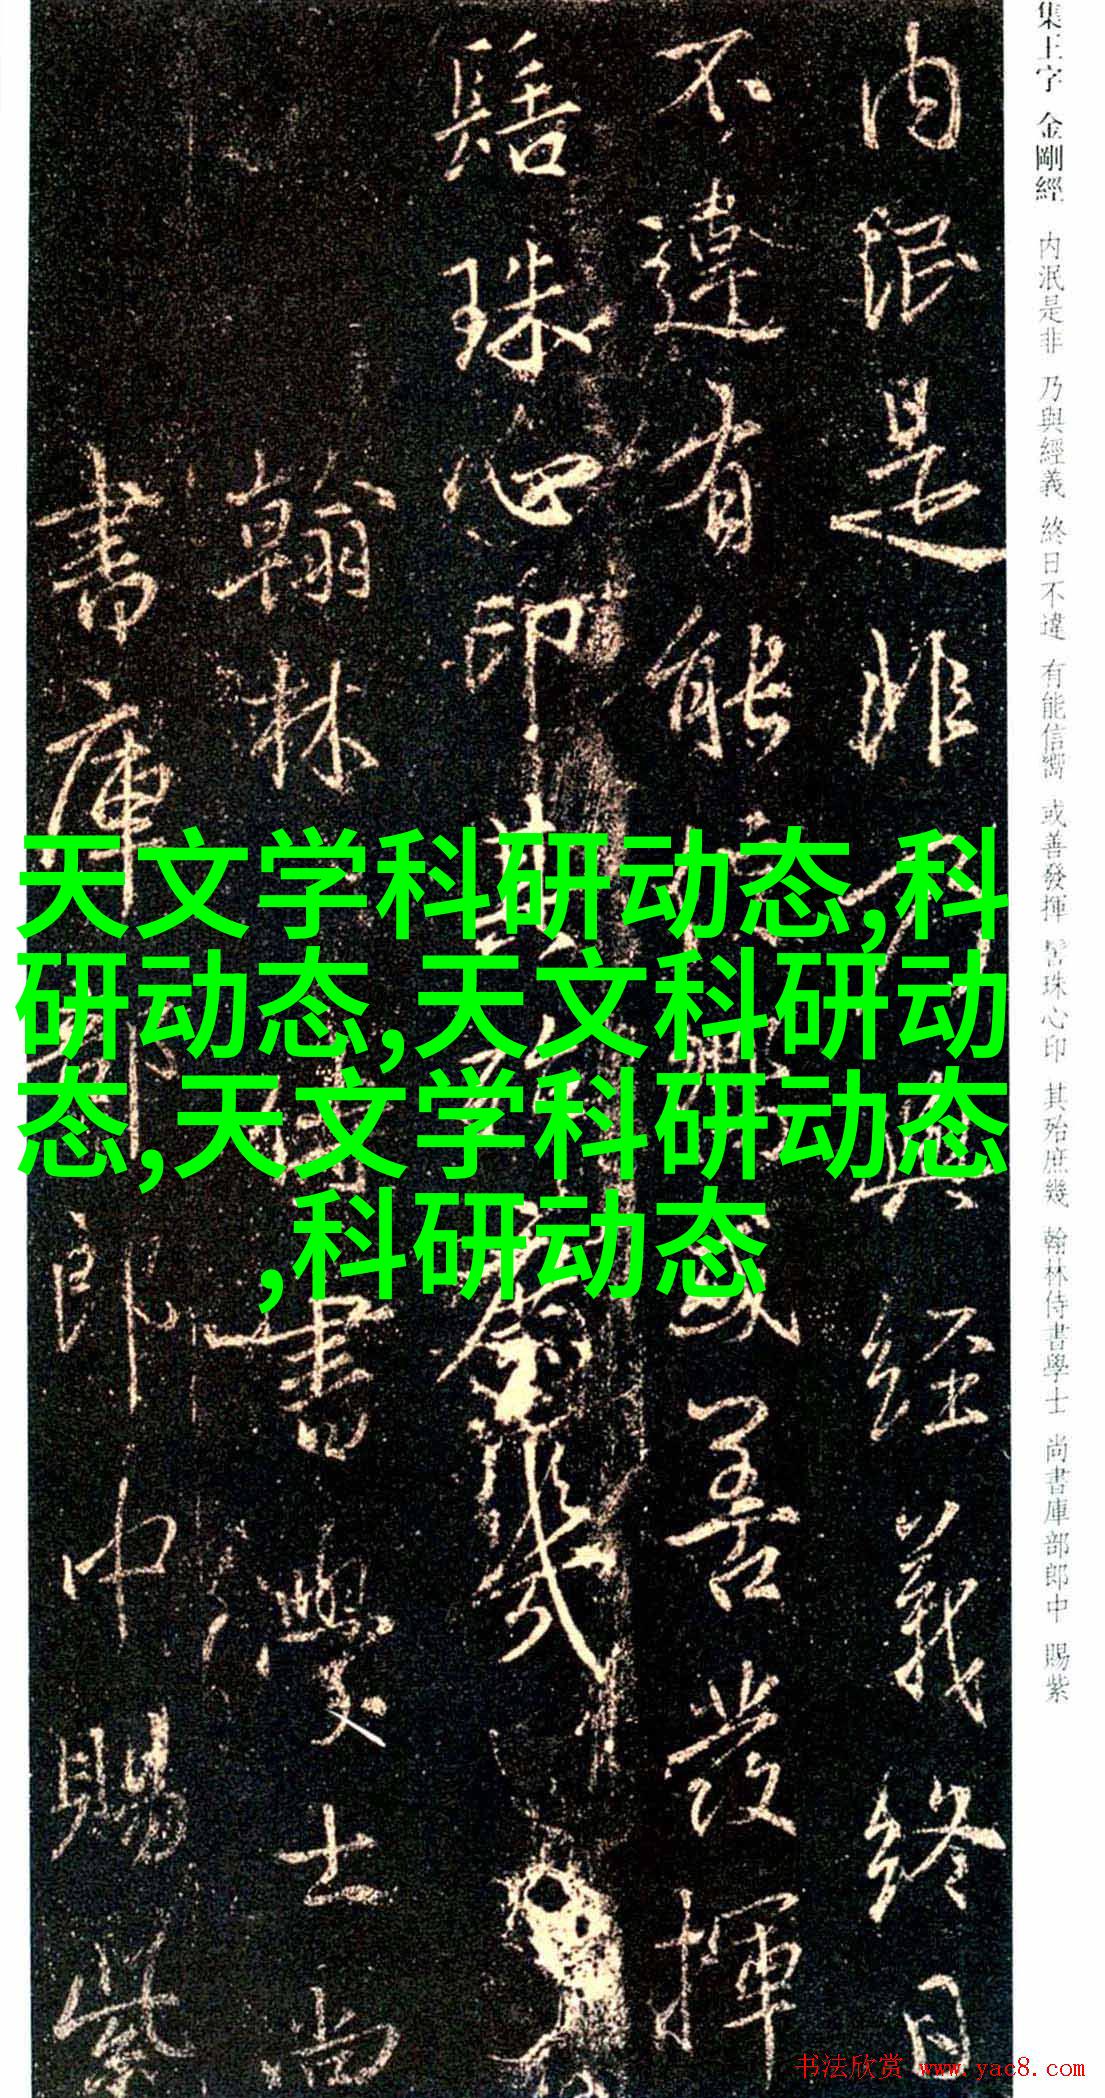 集王字 金剛經 内泯是非 乃與經義 終日不違 有能信嚮 或善發揮 髻珠心印 其殆庶幾 翰林侍書學士 尚書庫部郎中 賜紫
内泯是非乃與經義終日
不違有能信嚮或善發揮
髻珠心印其殆庶幾
翰林侍書學士尚
書庫部郎中賜紫
天文学科研动态,科
研动态,天文科研动
态,天文学科研动态
,科研动态
书法欣赏 www.yac8.com